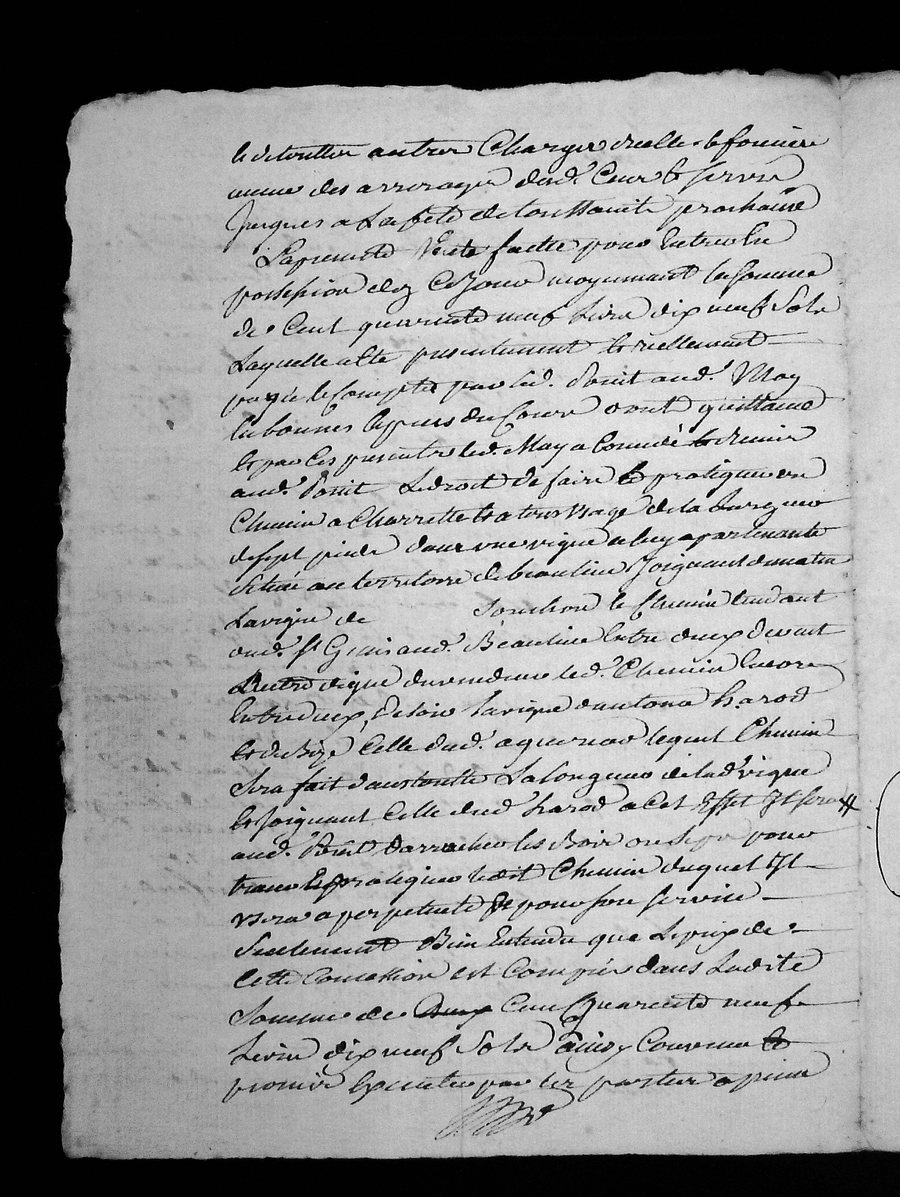 et de toutter autres Charges reelle & fonciere
meme des arrerages dud. Cens & servis
Jusques a La fete de toussainte prochaine
La presente Vente faitte pour Entrer En
possession dez Ce Jour moyennant la somme
de Cent quarente neuf Livre dix neuf Sols
Laquelle a ete presentement & reellement
payée & Comptée par led. Ponit aud. May
En bonnes Especes du Cours dont quittance
Et par Ces presentes led. May a Concedé & remis
aud. Ponit Le droit de faire & pratiquer un
Chemin a Charrette & a tous Usage de la Largeur
de sept pieds dans une vigne a luy apartenante
Situé au territoire de beaulieu Joignant de matin
La vigne de Souchon le Chemin tendant
dud. St Genis aud. Beaulieu Entre deux de vent
Autre vigne du vendeur led. Chemin Encore
Entre deux, de soir la vigne d'antoine harod
Et de Bize Celle dud. aquereur lequel Chemin
Sera fait dans toutte La Longueur de lad vigne
Et Joignant Celle dud harod a Cet Effet Il sera #
aud. Ponit d'arracher les Bois ou Seps pour
tracer & pratiquer ledit Chemin duquel Il
Usera a perpetuité & pour son service
Seulement Bien Entendu que Le prix de
Cette Concession est Compris dans Ladite
Somme de Cent Quarente neuf
Livre dix neuf Sols ainsy Convenu &
promis Executer par les parties a peine